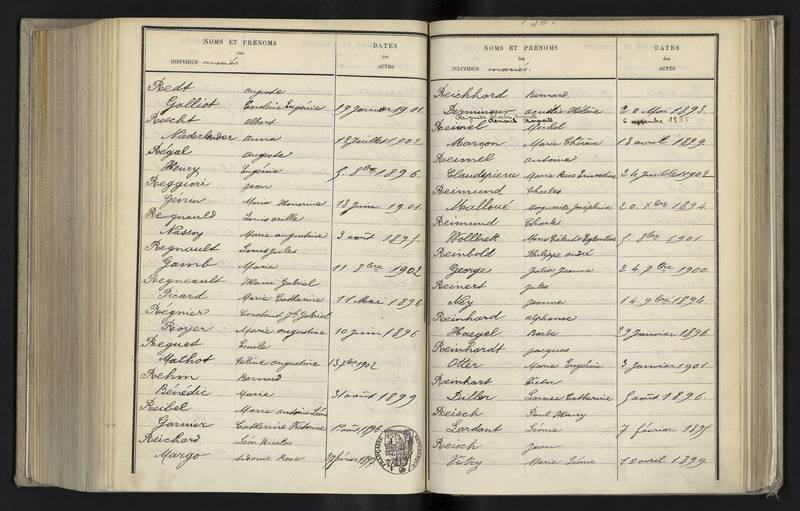 NOMS ET PRÉNOMS DATES
des des
INDIVIDUS mariés ACTES
Redt auguste
Galliot Caroline Eugénie 19 Janvier 1901
Reecht albert
Niederlender anna 12 Juillet 1902
Régal auguste
Henry Eugénie 5 8bre 1896
Reggiori jean
Génin Maria Honorine 13 juin 1901
Regnauld Louis
Nassoy Marie augustine 3 août 1895
Regnault Louis Jules
Gamb Marie 11 8bre 1902
Regneault Henri Gabriel
Picard Marie Catherine 11 Mai 1896
Régnier Constant Gabriel
Royer Marie augustine 10 juin 1896
Reguet Emile
Mathot augustine 1902
Rehm Bernard
Bénédic Marie 31 août 1899
Reibel Marie antoine Léon
Garnier Catherine Victorine août 1896
Reichard Léon Nicolas
Margo Sidonie Rose 27 février 1897
NOMS ET PRÉNOMS DATES
des des
INDIVIDUS mariés. ACTES
Reichhard Bernard
Hélène 20 Mai 1893
6 novembre 1895
Reimel Michel
Marçon Marie Thérèse 18 avril 1899
Reimel antoine
Claudepierre Marie Rose Ernestine 26 juillet 1902
Reimund Charles
Malloué Marguerite Joséphine 20 Xbre 1894
Reimund Charles
Wollbrett Marie 5 8bre 1901
Reinbold Philippe andré
Georges Julie Jeanne 24 9bre 1900
Reinert Jules
Ney Jeanne 14 9bre 1894
Reinhard alphonse
Haegel Barbe 29 Janvier 1896
Reinhardt Jacques
Otter Marie Eugénie 3 Janvier 1901
Reinhart Victor
Diller Louise Catherine 5 août 1896
Reisch Paul Henry
Lardant Léonie 7 février 1895
Reisch Jean
Vitry Marie Léonie 10 avril 1899